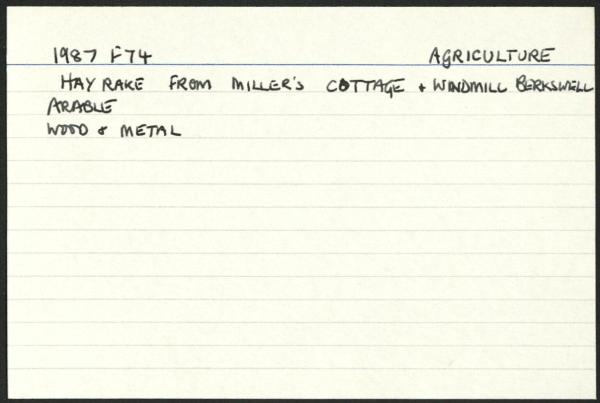 1987 F74 AGRICULTURE
HAY RAKE FROM MILLER'S COTTAGE + WINDMILL BERKSWELL
ARABLE
WOOD & METAL